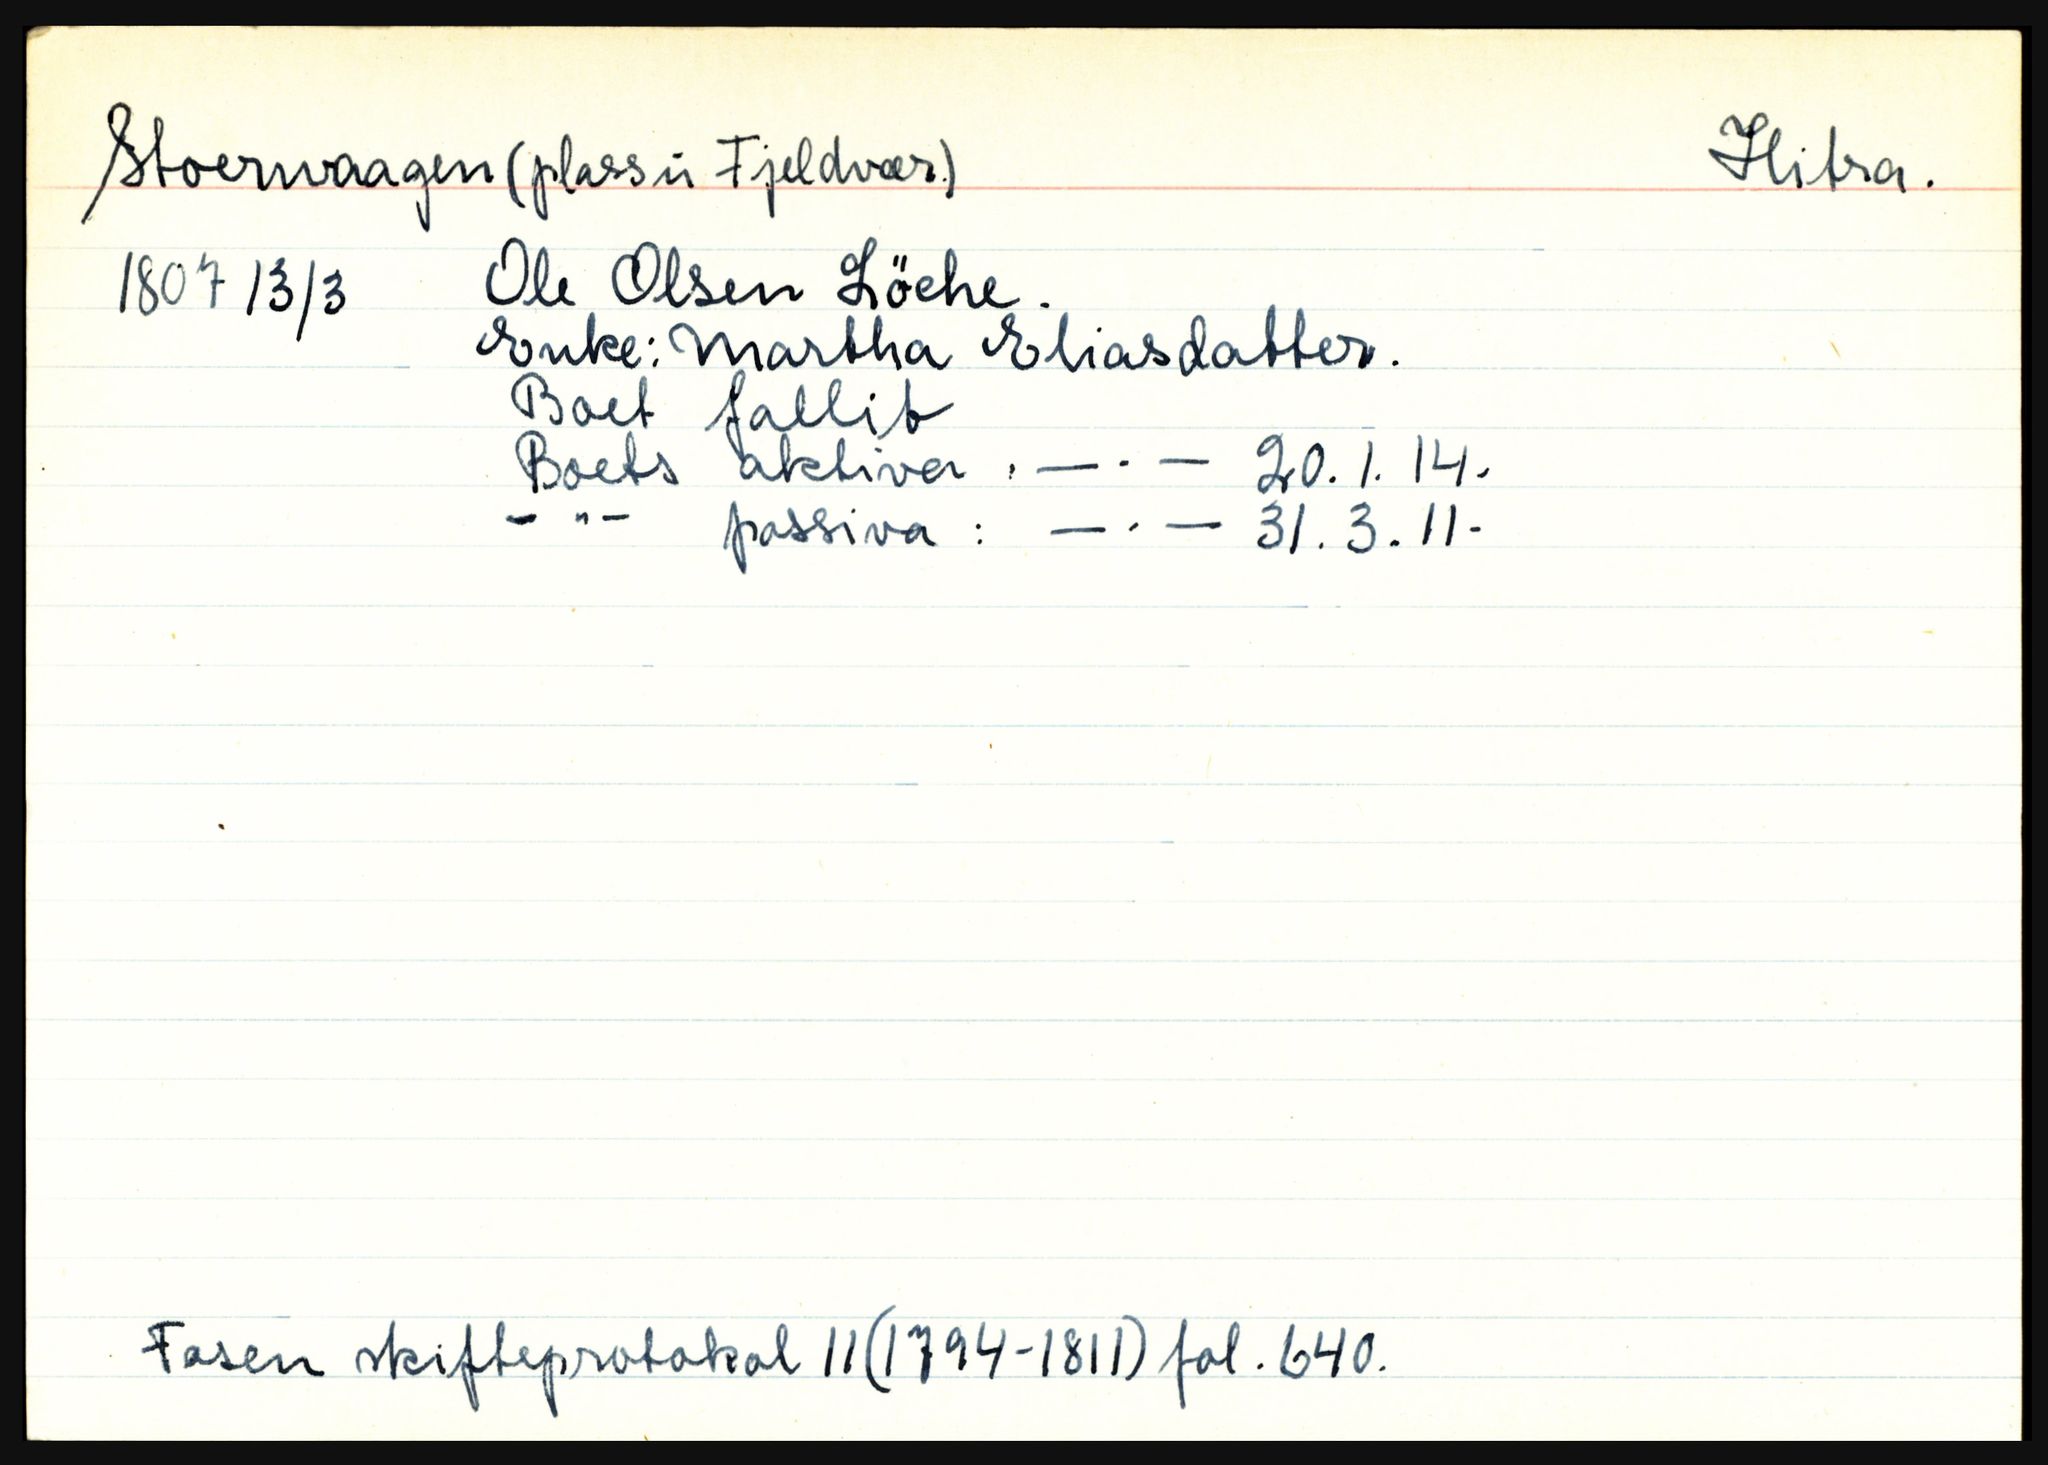 Stoervaagen (plass u Fjeldvær.) Hitra.
1807 13/3 Ole Olsen Löche.
Enke: Martha Eliasdatter.
Boet fallit
Boets aktiva . — · — 20. 1. 14.
- " - passiva : — · — 31. 3. 11-
Fosen skifteprotokol 11 (1794-1811) fol. 640.